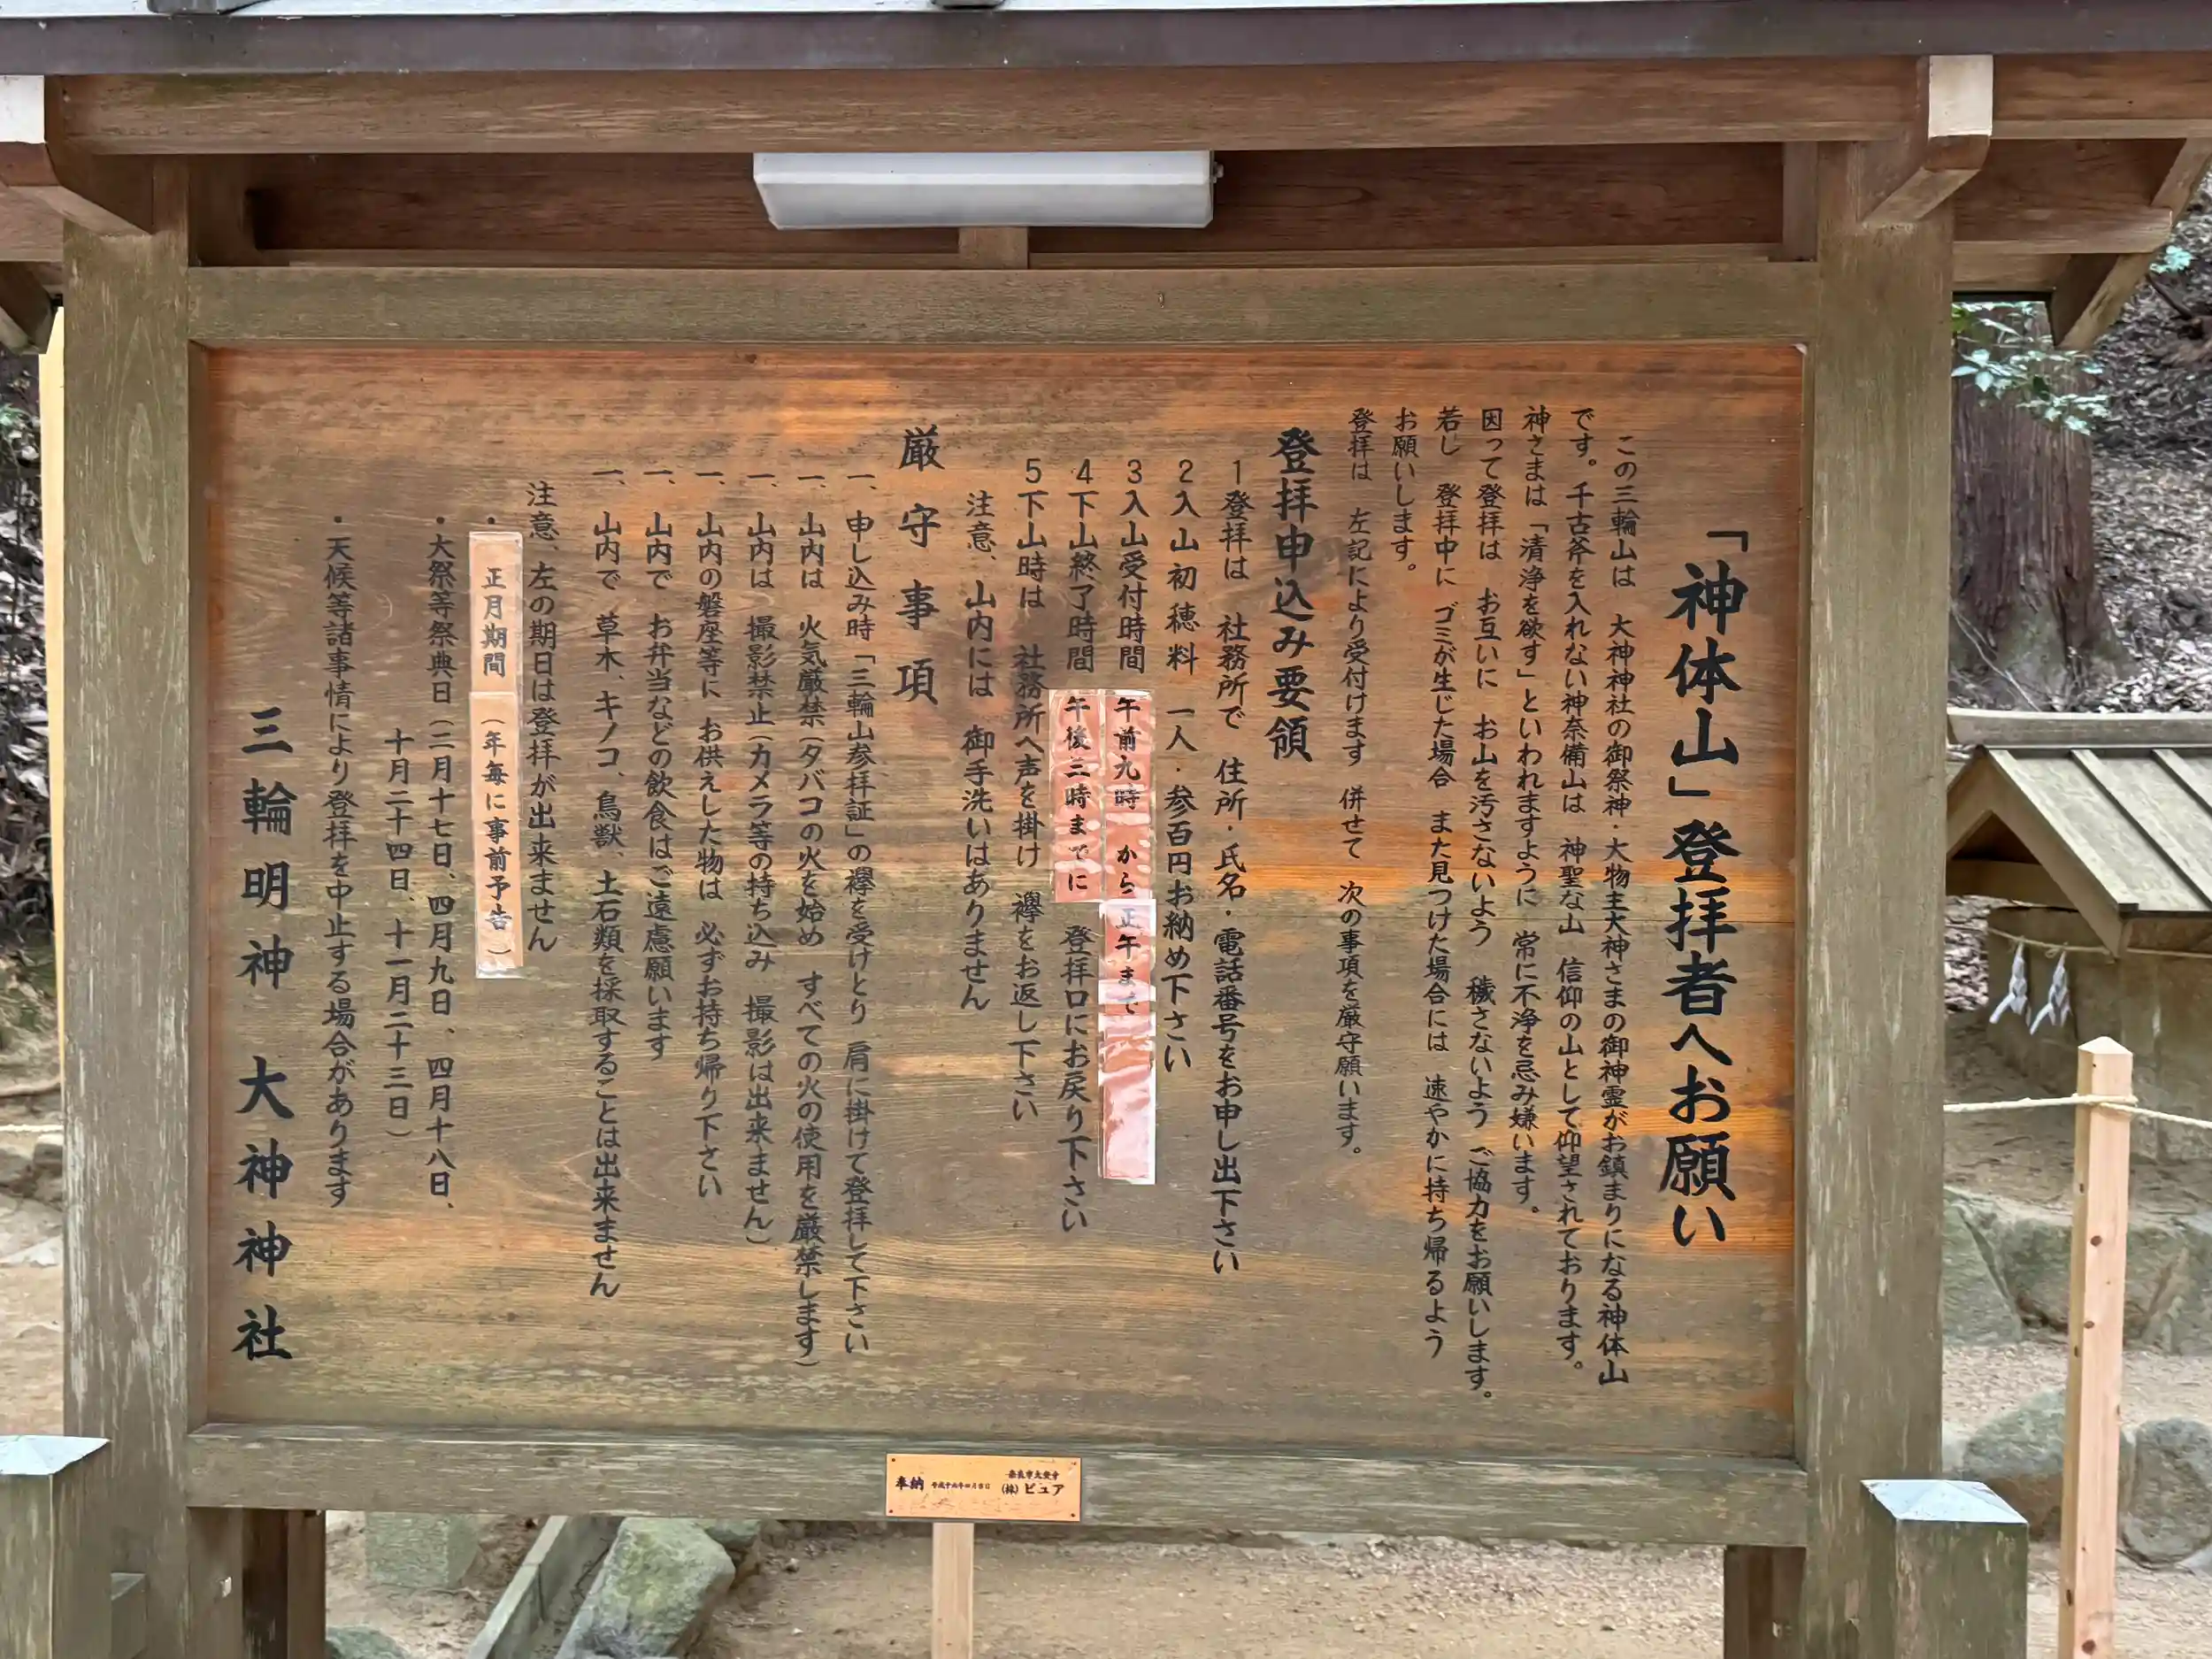 「神体山」登拝者へお願い
この三輪山は 大神神社の御祭神・大物主大神さまの御神霊がお鎮まりになる神体山
です。千古斧を入れない神奈備山は 神聖な山 信仰の山として仰望されております。
神さまは「清浄を欲す」といわれますように 常に不浄を忌み嫌います。
因って登拝は お互いに お山を汚さないよう 穢さないよう ご協力をお願いします。
若し 登拝中に ゴミが生じた場合 また見つけた場合には 速やかに持ち帰るよう
お願いします。
登拝は 左記により受付けます 併せて 次の事項を厳守願います。
登拝申込み要領
1登拝は 社務所で 住所・氏名・電話番号をお申し出下さい
2入山初穂料 一人・参百円お納め下さい
3入山受付時間 午前九時 から 正午まで
4下山終了時間 午後三時までに 登拝口にお戻り下さい
5下山時は 社務所へ声を掛け 襷をお返し下さい
注意、山内には 御手洗いはありません
厳守事項
一、申し込み時「三輪山参拝証」の襷を受けとり 肩に掛けて登拝して下さい
一、山内は 火気厳禁(タバコの火を始め すべての火の使用を厳禁します)
一、山内は 撮影禁止(カメラ等の持ち込み 撮影は出来ません)
一、山内の磐座等に お供えした物は 必ずお持ち帰り下さい
一、山内で お弁当などの飲食はご遠慮願います
一、山内で 草木、キノコ、鳥獣、土石類を採取することは出来ません
注意、左の期日は登拝が出来ません
・正月期間 (年毎に事前予告)
・大祭等祭典日(二月十七日、四月九日、四月十八日、
十月二十四日、十一月二十三日)
・天候等諸事情により登拝を中止する場合があります
三輪明神 大神神社
(株)ピュア
奉納